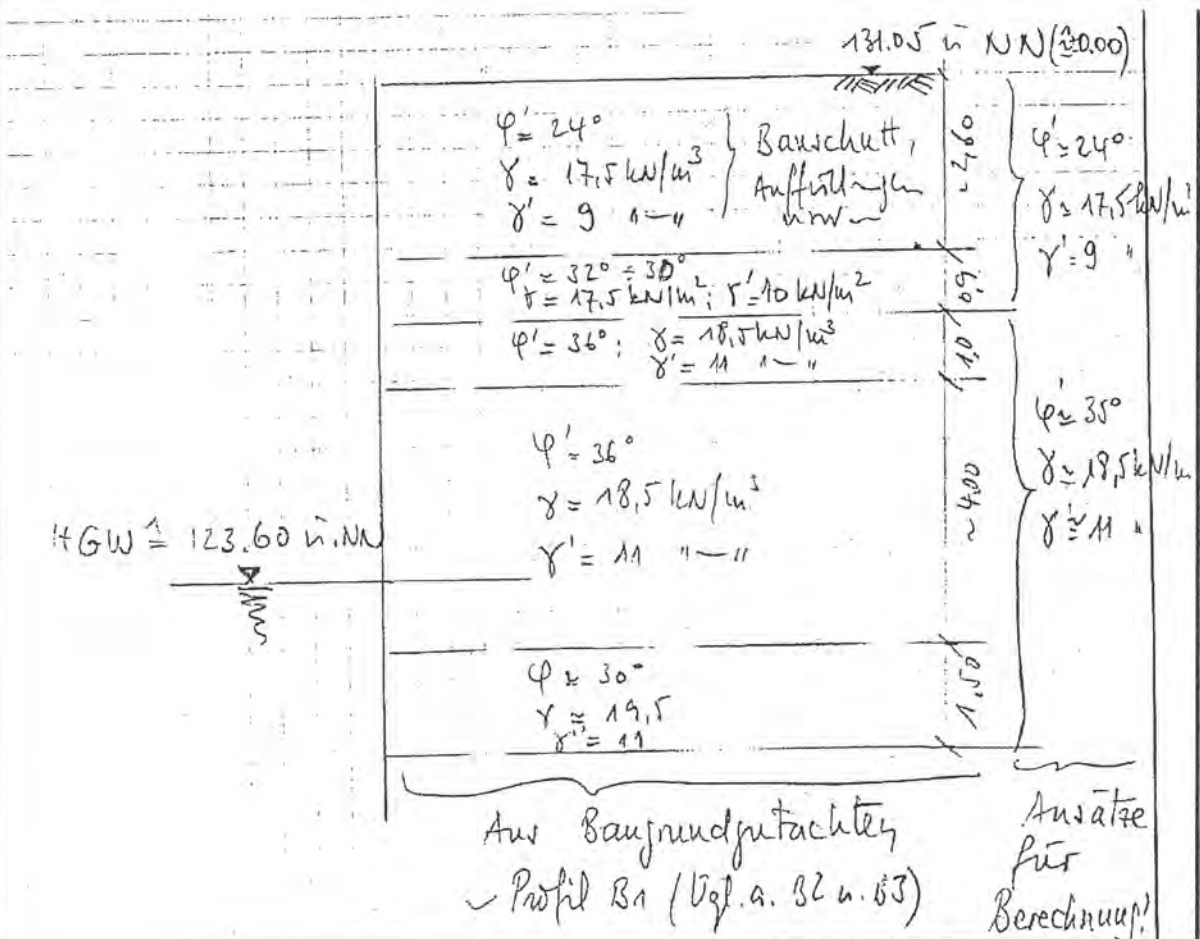 131.05 ü NN (≙±0.00)
φ' = 24°
γ = 17,5 kN/m³
γ' = 9 "—"
Bauschutt,
Auffüllungen
usw
~2,60
φ' = 32° ÷ 30°
γ = 17,5 kN/m²; γ' = 10 kN/m²
0,9
φ' = 36°; γ = 18,5 kN/m³
γ' = 11 "—"
1,0
φ' = 36°
γ = 18,5 kN/m³
γ' = 11 "—"
~4,00
HGW ≙ 123.60 ü.NN
φ ≅ 30°
γ ≅ 19,5
γ' = 11
1,50
φ' ≅ 24°
γ ≅ 17,5 kN/m³
γ' = 9 "
φ' ≅ 35°
γ ≅ 18,5 kN/m
γ' ≅ 11 "
Aus Baugrundgutachten
~ Profil B1 (Vgl. a. B2 u. B3)
Ansätze
für
Berechnung!